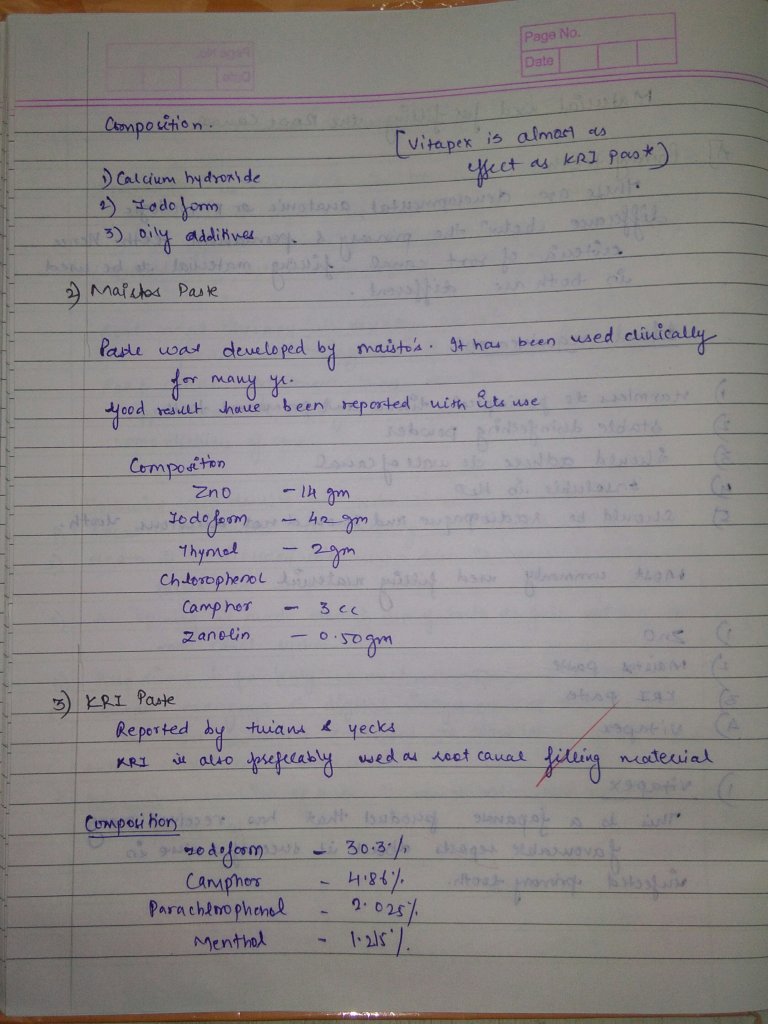 Page No.
Date
Composition.
[Vitapex is almost as
effect as KRI Paste)
1) Calcium hydroxide
2) Iodoform
3) Oily additives.
2) Maistos Paste
Paste was developed by maisto's. It has been used clinically
for many yr.
Good result have been reported with its use
Composition
ZnO - 14 gm
Iodoform - 42 gm
Thymol - 2gm
Chlorophenol
Camphor - 3 cc
Zanolin - 0.50gm
3) KRI Paste
Reported by & yecks
KRI is also preferably used as root canal filling material
Composition
Iodoform - 30.3%
Camphor - 4.86%
Parachlorophenol - 2.025%
Menthol - 1.215%